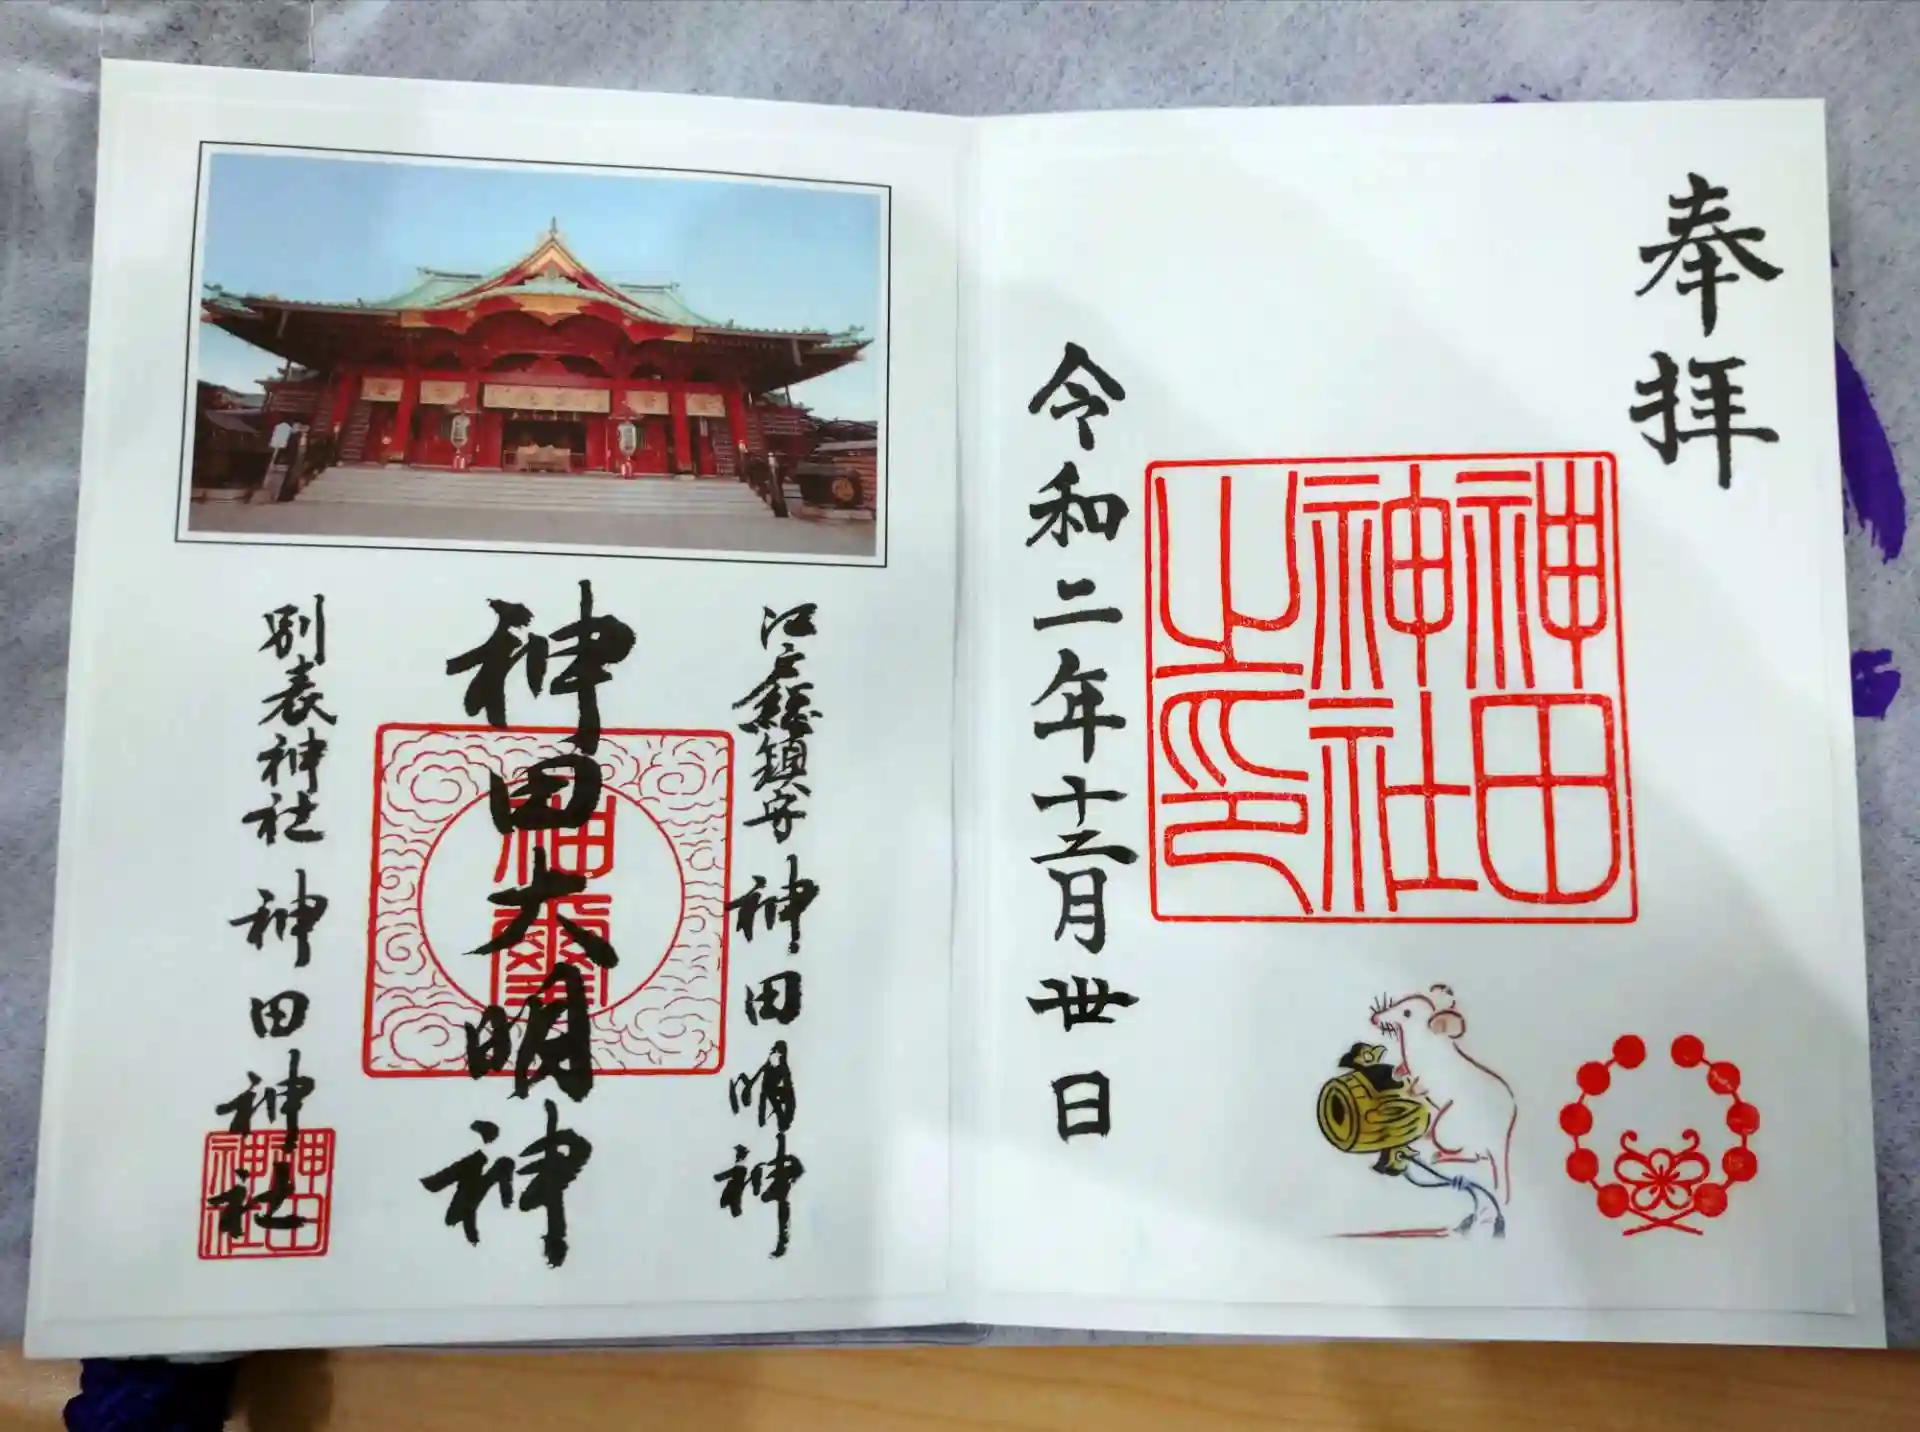 奉拝
神田
神社
之印
令和二年十二月丗日
江戸総鎮守 神田明神
神田大明神
神璽
別表神社 神田神社
神田
神社